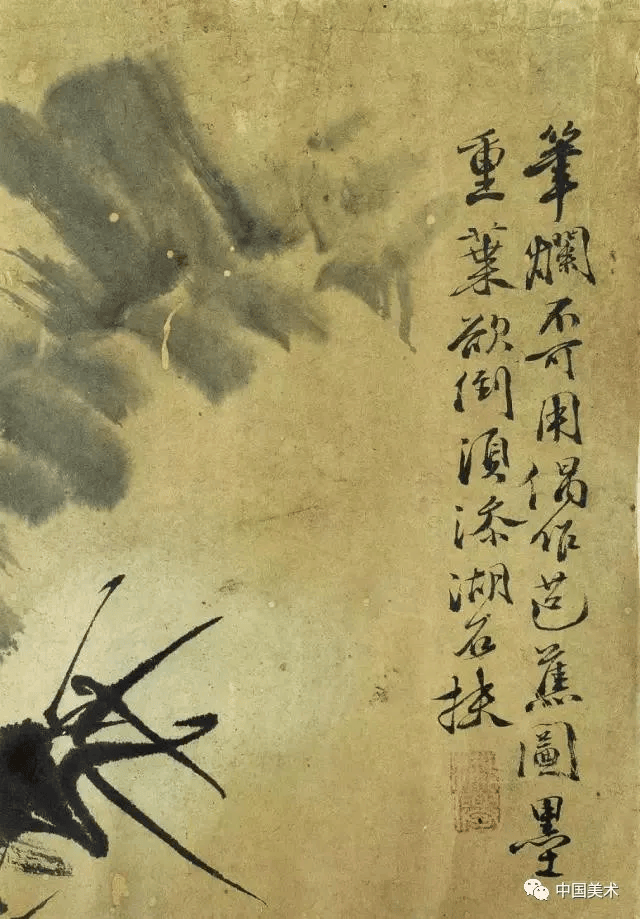 筆爛不可用偶作芭蕉圖墨
重葉欲倒須添湖石扶
中国美术